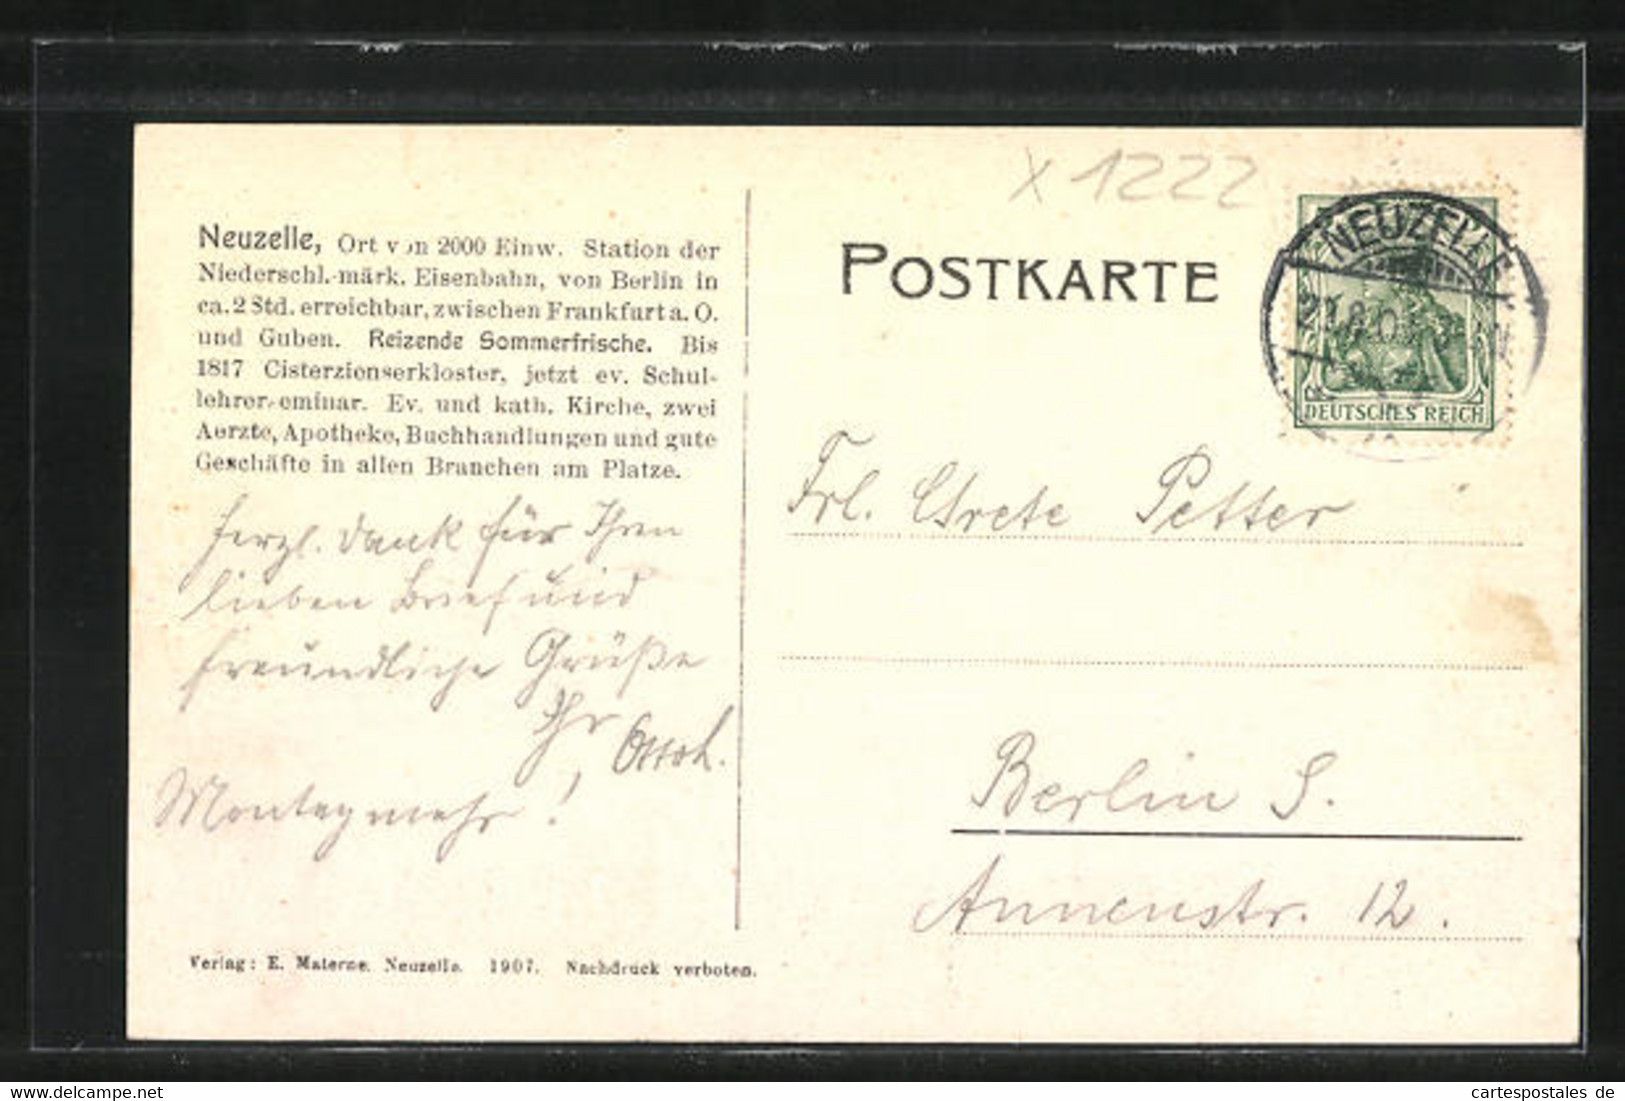 x 1222
Neuzelle, Ort von 2000 Einw. Station der
Niederschl.-märk. Eisenbahn, von Berlin in
ca. 2 Std. erreichbar, zwischen Frankfurt a. O.
und Guben. Reizende Sommerfrische. Bis
1817 Cisterzienserkloster, jetzt ev. Schul-
lehrer-eminar. Ev. und kath. Kirche, zwei
Aerzte, Apotheke, Buchhandlungen und gute
Geschäfte in allen Branchen am Platze.
herzl. Dank für Ihren
lieben Brief und
freundliche Grüße
Ihr
Montag mehr!
Verlag: E. Materne. Neuzelle. 1907. Nachdruck verboten.
POSTKARTE
NEUZELLE
DEUTSCHES REICH
Frl. Grete Petter
Berlin S.
Annenstr. 12.
www.cartespostales.eu
cartespostales de